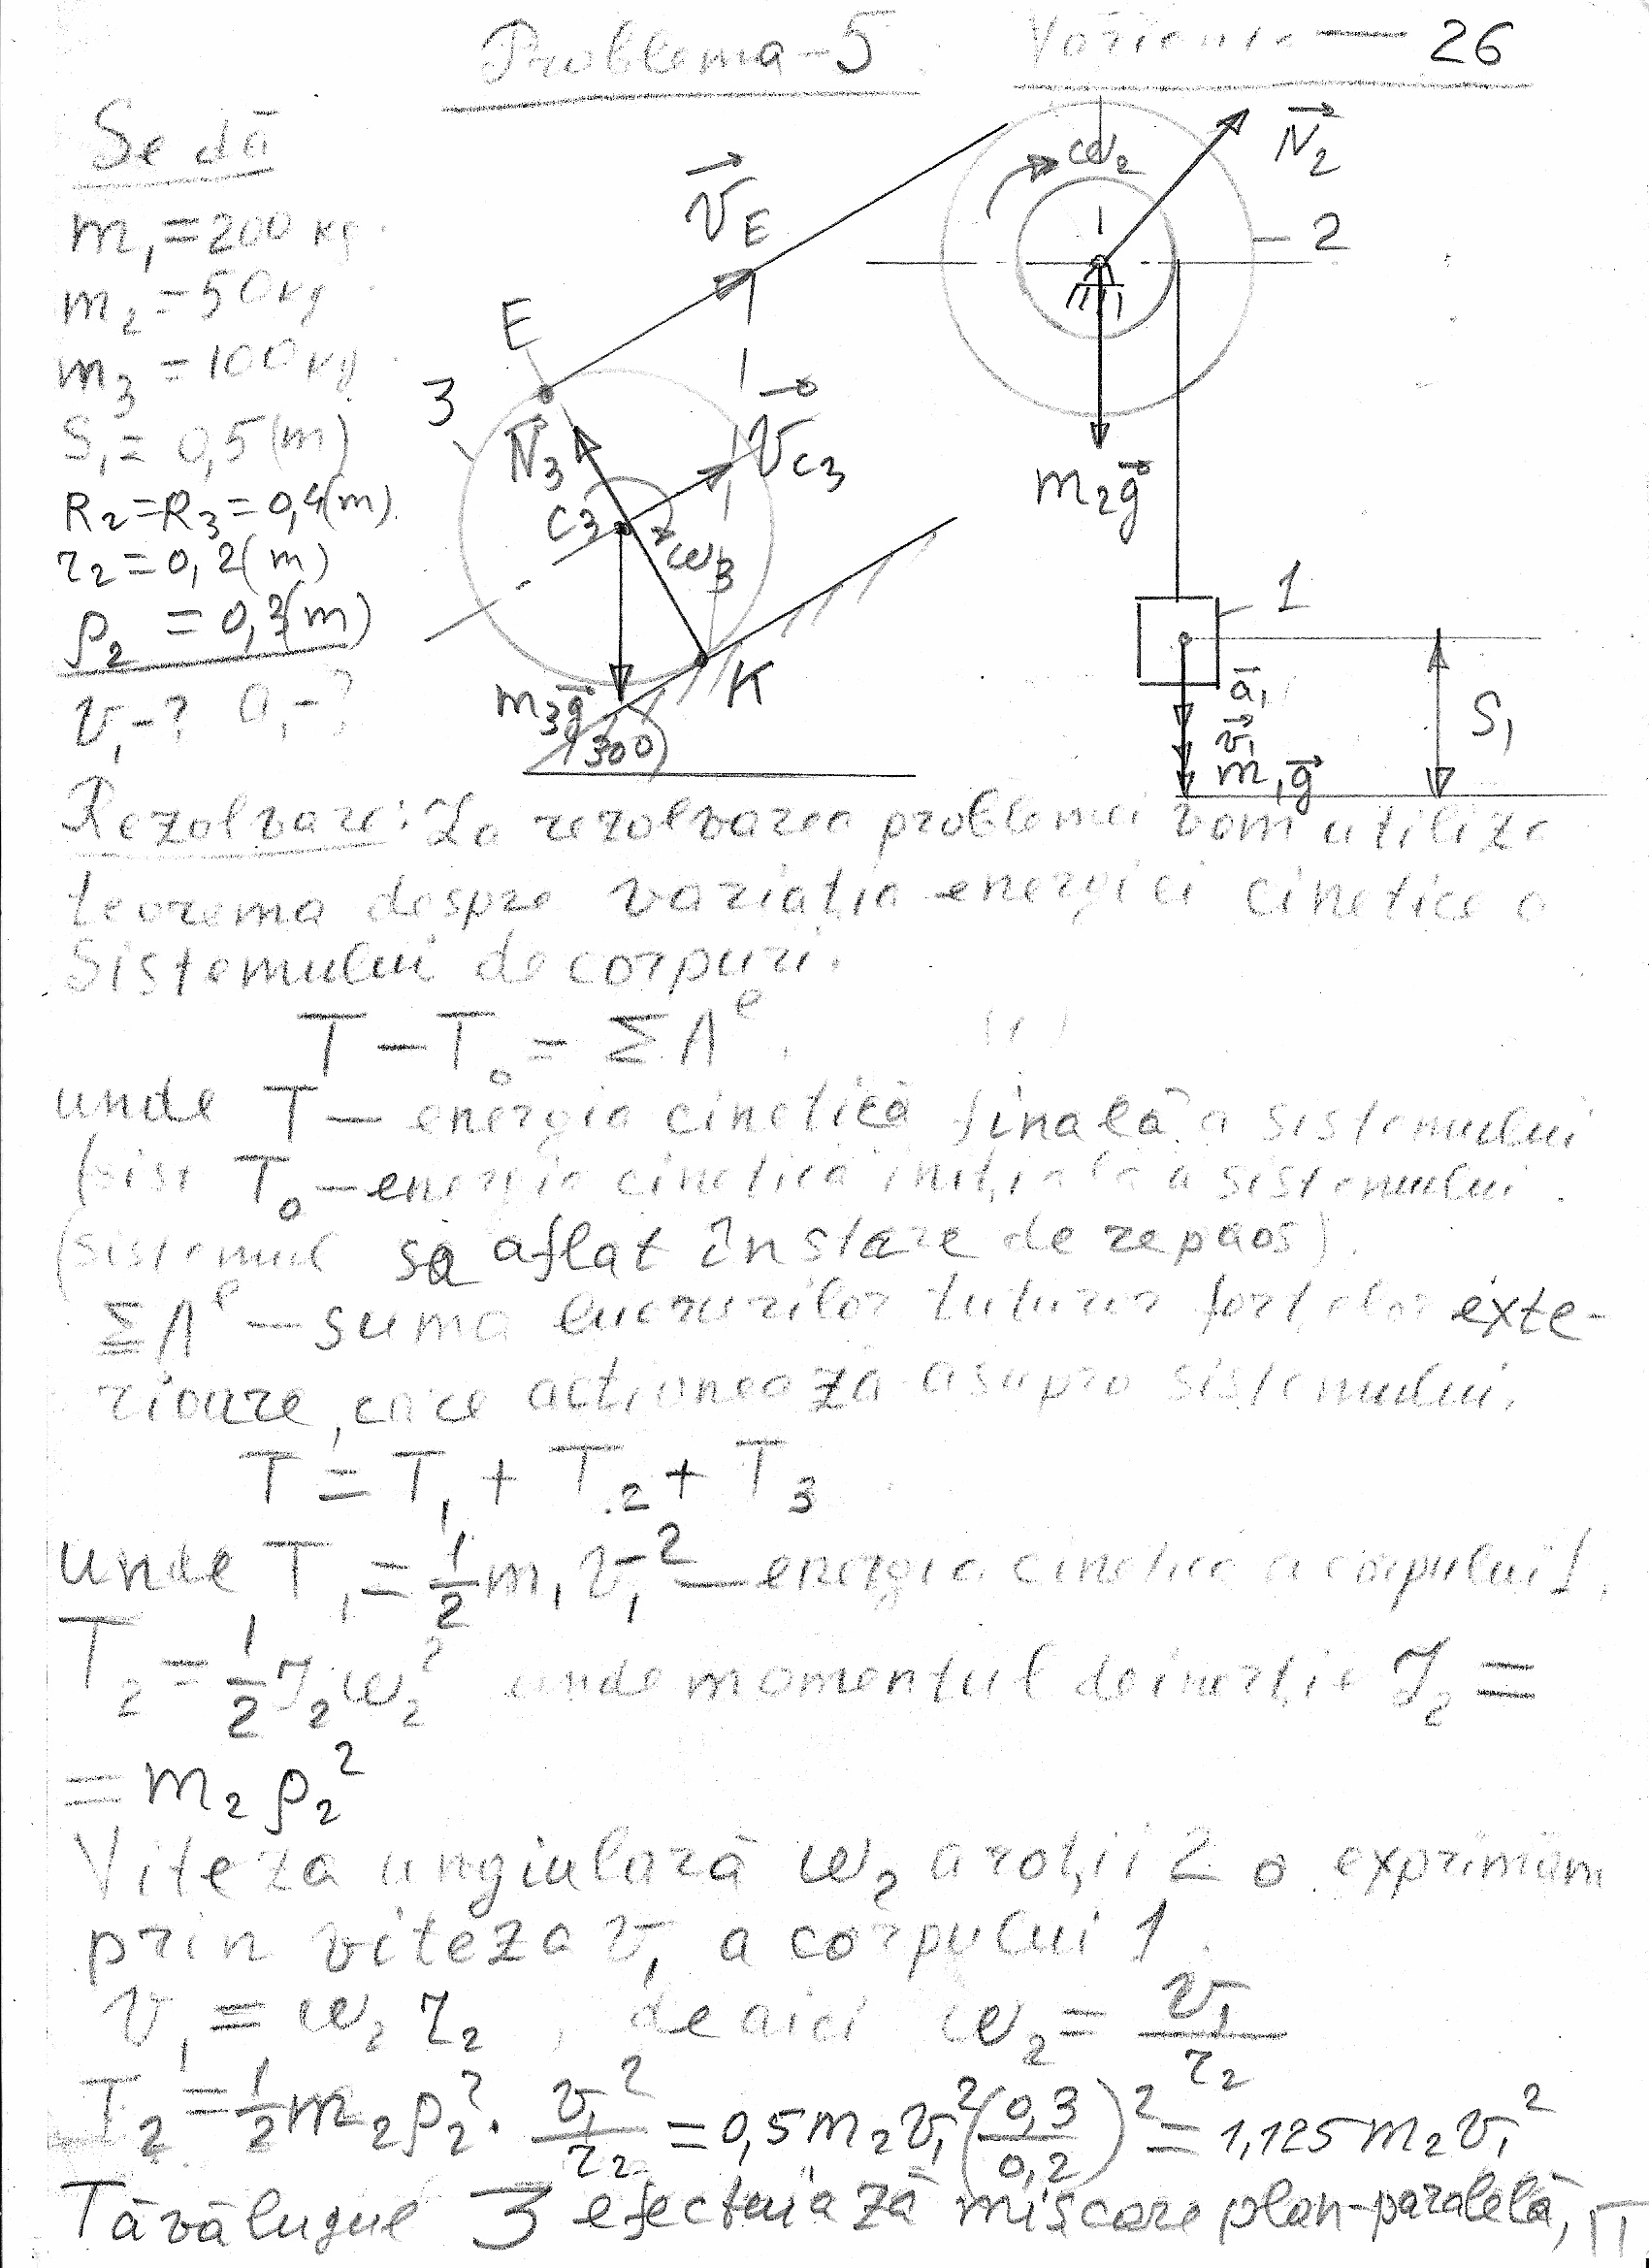 Problema-5 Varianta — 26
Se dă
m₁=200 kg
m₂=50kg
m₃=100kg
S₁= 0,5(m)
R₂=R₃=0,4(m).
r₂=0,2(m)
ρ₂ = 0,3(m)
v₁-? a₁-?
E
v⃗E
3
N⃗₃
C₃
v⃗C₃
ω₃
m₃g⃗
30°
K
ω₂
N⃗₂
2
m₂g⃗
1
a̅₁
v⃗₁
m₁g⃗
S₁
Rezolvare: La rezolvarea problemei vom utiliza
teorema despre variația energiei cinetice a
Sistemului de corpuri.
T-T₀ = ΣAᵉ, (1)
unde T— energia cinetică finală a sistemului
T₀—energia cinetică inițială a sistemului.
(sistemul sa aflat în stare de repaos).
ΣAᵉ — suma lucrurilor tuturor forțelor exte-
rioare, ce acționează asupra sistemului.
T = T₁ + T₂ + T₃
unde T₁ = 1/2 m₁v₁² — energia cinetică a corpului 1.
T₂ = 1/2 J₂ω₂² unde momentul de inerție J₂ =
= m₂ρ₂²
Viteza unghiulară ω₂ a roții 2 o exprimăm
prin viteza v₁ a corpului 1.
v₁ = ω₂ r₂, de aici ω₂ = v₁/r₂
T₂ = 1/2 m₂ρ₂² · v₁²/r₂ = 0,5m₂v₁²(0,3/0,2)² = 1,125m₂v₁²
Tăvălugul 3 efectuiază mișcare plan-paralelă,